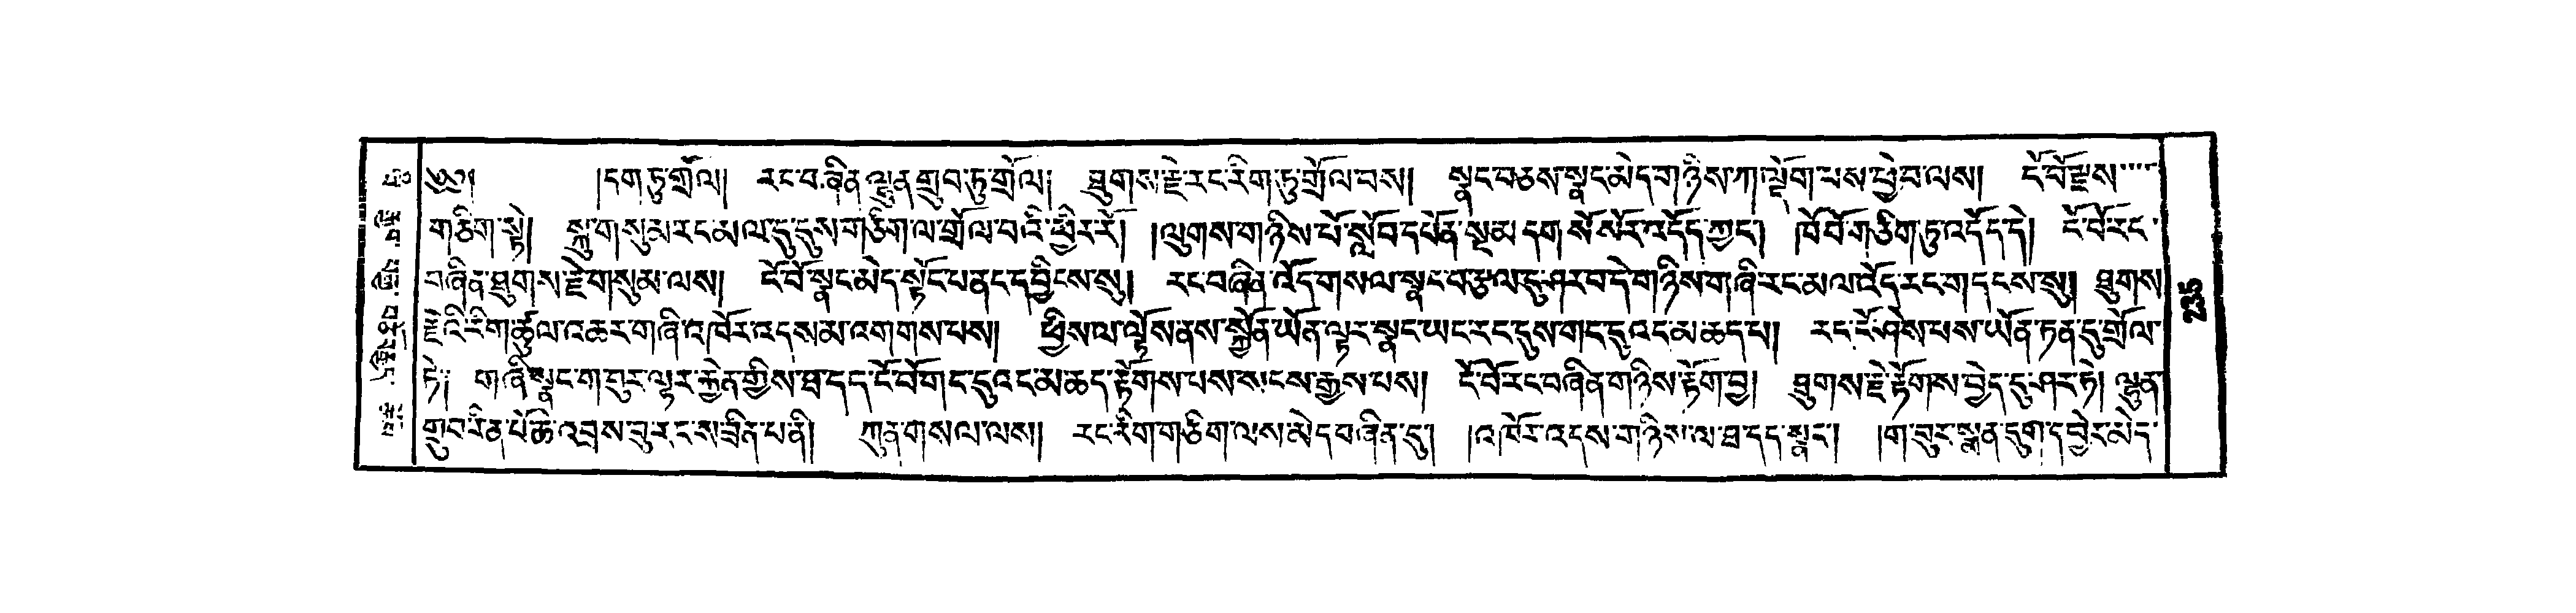 ༄༅། །དག་ཏུ་གྲོལ། རང་བཞིན་ལྷུན་གྲུབ་ཏུ་གྲོལ། ཐུགས་རྗེ་རང་རིག་ཏུ་གྲོལ་བས། སྣང་བཅས་སྣང་མེད་གཉིས་ཀ་ལྡོག་པས་ཕྱེ་བ་ལས། ངོ་བོ་རྫས་
གཅིག་སྟེ། སྐུ་གསུམ་རང་མལ་དུ་དུས་གཅིག་ལ་གྲོལ་བའི་ཕྱིར་རོ། །ལུགས་གཉིས་པོ་སློབ་དཔོན་སྔམ་དག་སོ་སོར་འདོད་ཀྱང༌། །ཁོ་བོ་གཅིག་ཏུ་འདོད་དེ། ངོ་བོ་རང་
བཞིན་ཐུགས་རྗེ་གསུམ་ལས། ངོ་བོ་སྣང་མེད་སྟོང་པ་ནང་དབྱིངས་སུ། རང་བཞིན་འོད་གསལ་སྣང་བ་རྩལ་དུ་ཤར་བ་དེ་གཉིས་གཞི་རང་མལ་འོད་རང་གདངས་སུ། ཐུགས་
རྗེའི་རིག་ཚུལ་འཆར་གཞི་འཁོར་འདས་མ་འགགས་པས། ཕྱིས་ལ་ལྟོས་ནས་སྐྱོན་ཡོན་ལྟར་སྣང་ཡང་རང་དུས་གང་དུའང་མ་ཆད་པ། རང་ངོ་ཤེས་པས་ཡོན་ཏན་དུ་གྲོལ་
ཏེ། གཞི་སྣང་གབུར་ལྟར་རྐྱེན་གྱིས་ཐ་དད་ངོ་བོ་གང་དུའང་མ་ཆད་རྟོགས་པས་སངས་རྒྱས་པས། ངོ་བོ་རང་བཞིན་གཉིས་རྟོག་བྱ། ཐུགས་རྗེ་རྟོགས་བྱེད་དུ་ཤར་ཏེ། ལྷུན་
གྲུབ་རིན་པོ་ཆེ་འབྲས་བུར་ངས་བྲིན་པ་ནི། ཀུན་གསལ་ལས། རང་རིག་གཅིག་ལས་མེད་བཞིན་དུ། །འཁོར་འདས་གཉིས་ལ་ཐ་དད་སྣང༌། །ག་བུར་སྨན་དུག་དབྱེར་མེད་